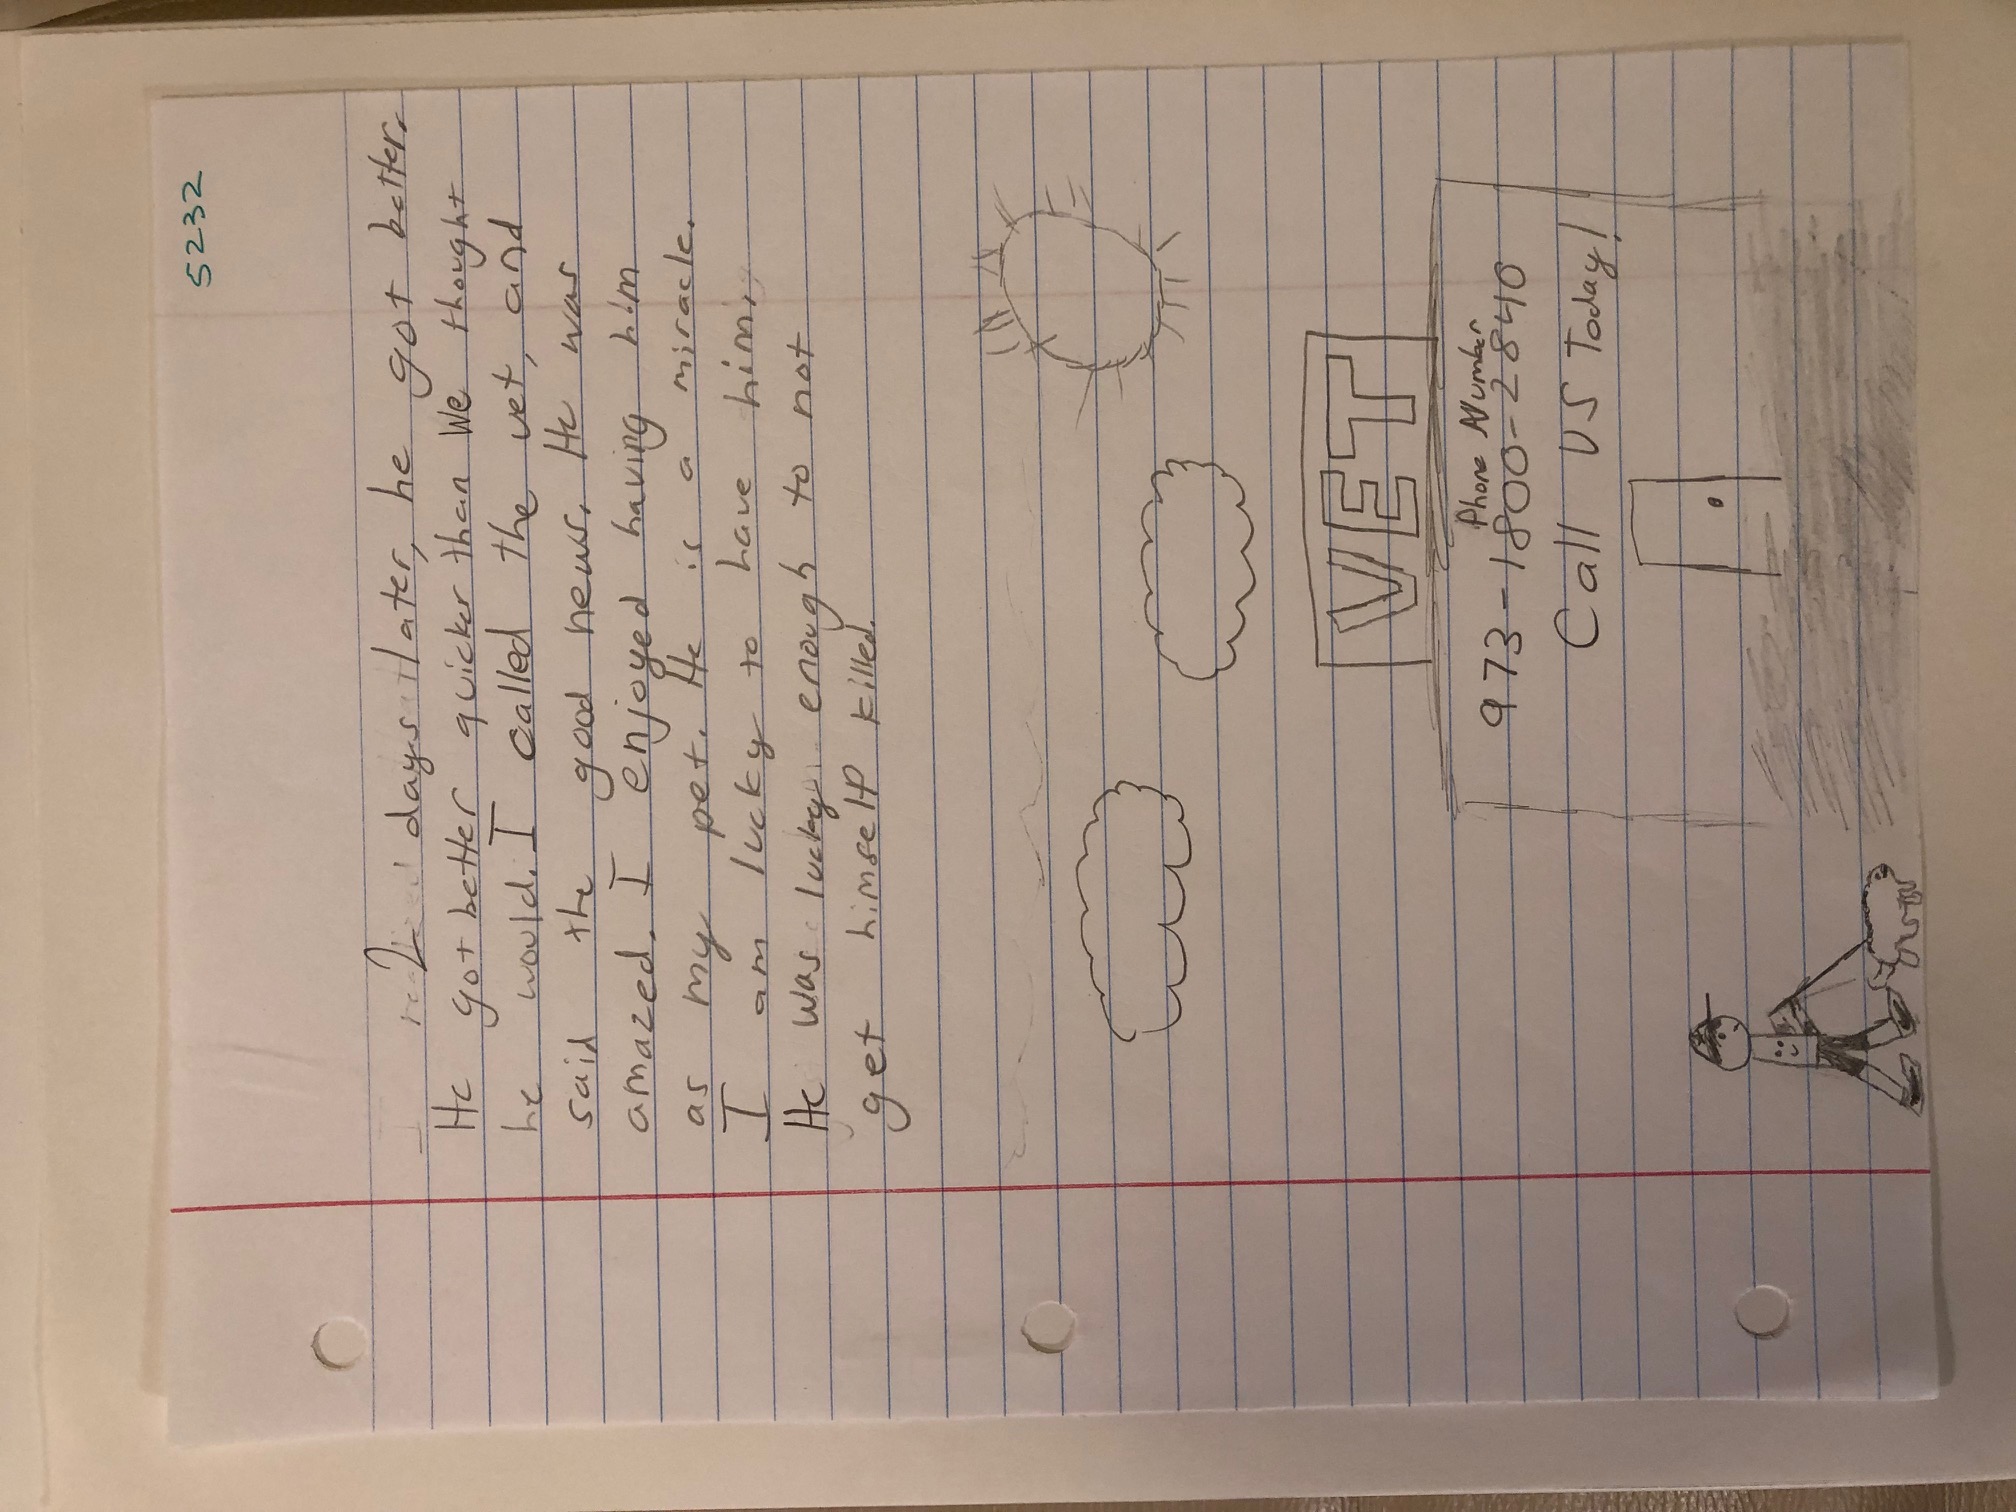 5232
2 days later, he got better.
He got better quicker than We thought
he would. I called the vet, and
said the good news. He was
amazed. I enjoyed having him
as my pet. He is a miracle.
I am lucky to have him.
He was lucky enough to not
get himself killed.
VET
Phone Number
973-1800-2840
Call US Today!